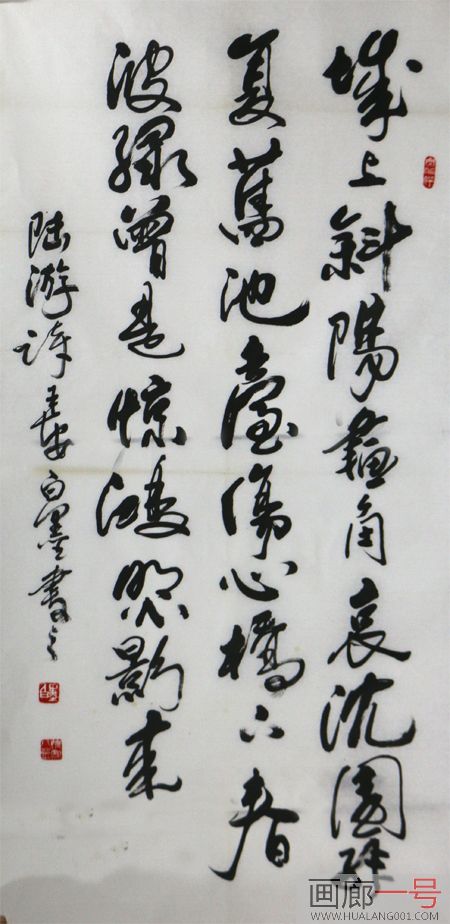 城上斜陽畫角哀沈園非
复舊池臺傷心橋下春
波綠曾是惊鴻照影来
陆游诗長安白墨書之
画廊一号
WWW.HUALANG001.COM